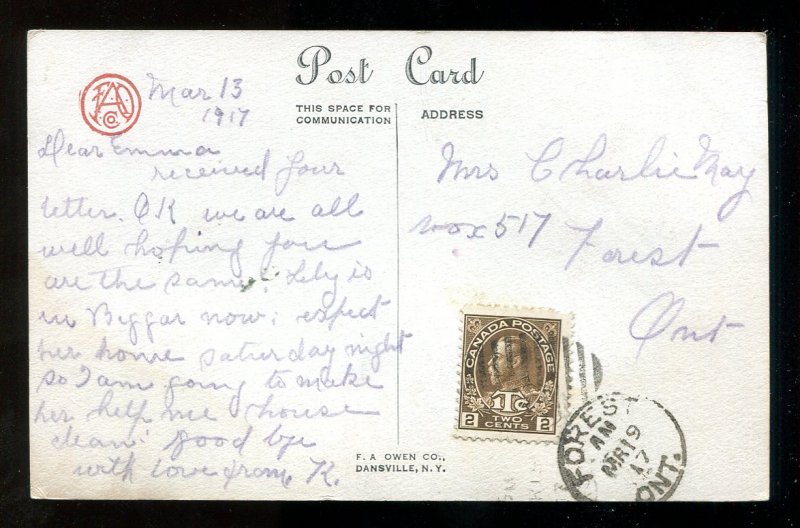 Post Card
THIS SPACE FOR
COMMUNICATION
ADDRESS
FAO
Co.
Mar 13
1917
Dear Emma
received your
letter. OK we are all
well hoping you
are the same. Lily is
in Biggar now; expect
her home saturday night
so I am going to make
her help me house
clean. good bye
with love from K.
Mrs Charlie May
Box 517
Forest
Ont
CANADA POSTAGE
1Tc
2 TWO CENTS 2
FOREST
AM
MR 19
17
ONT.
F. A. OWEN CO.,
DANSVILLE, N.Y.